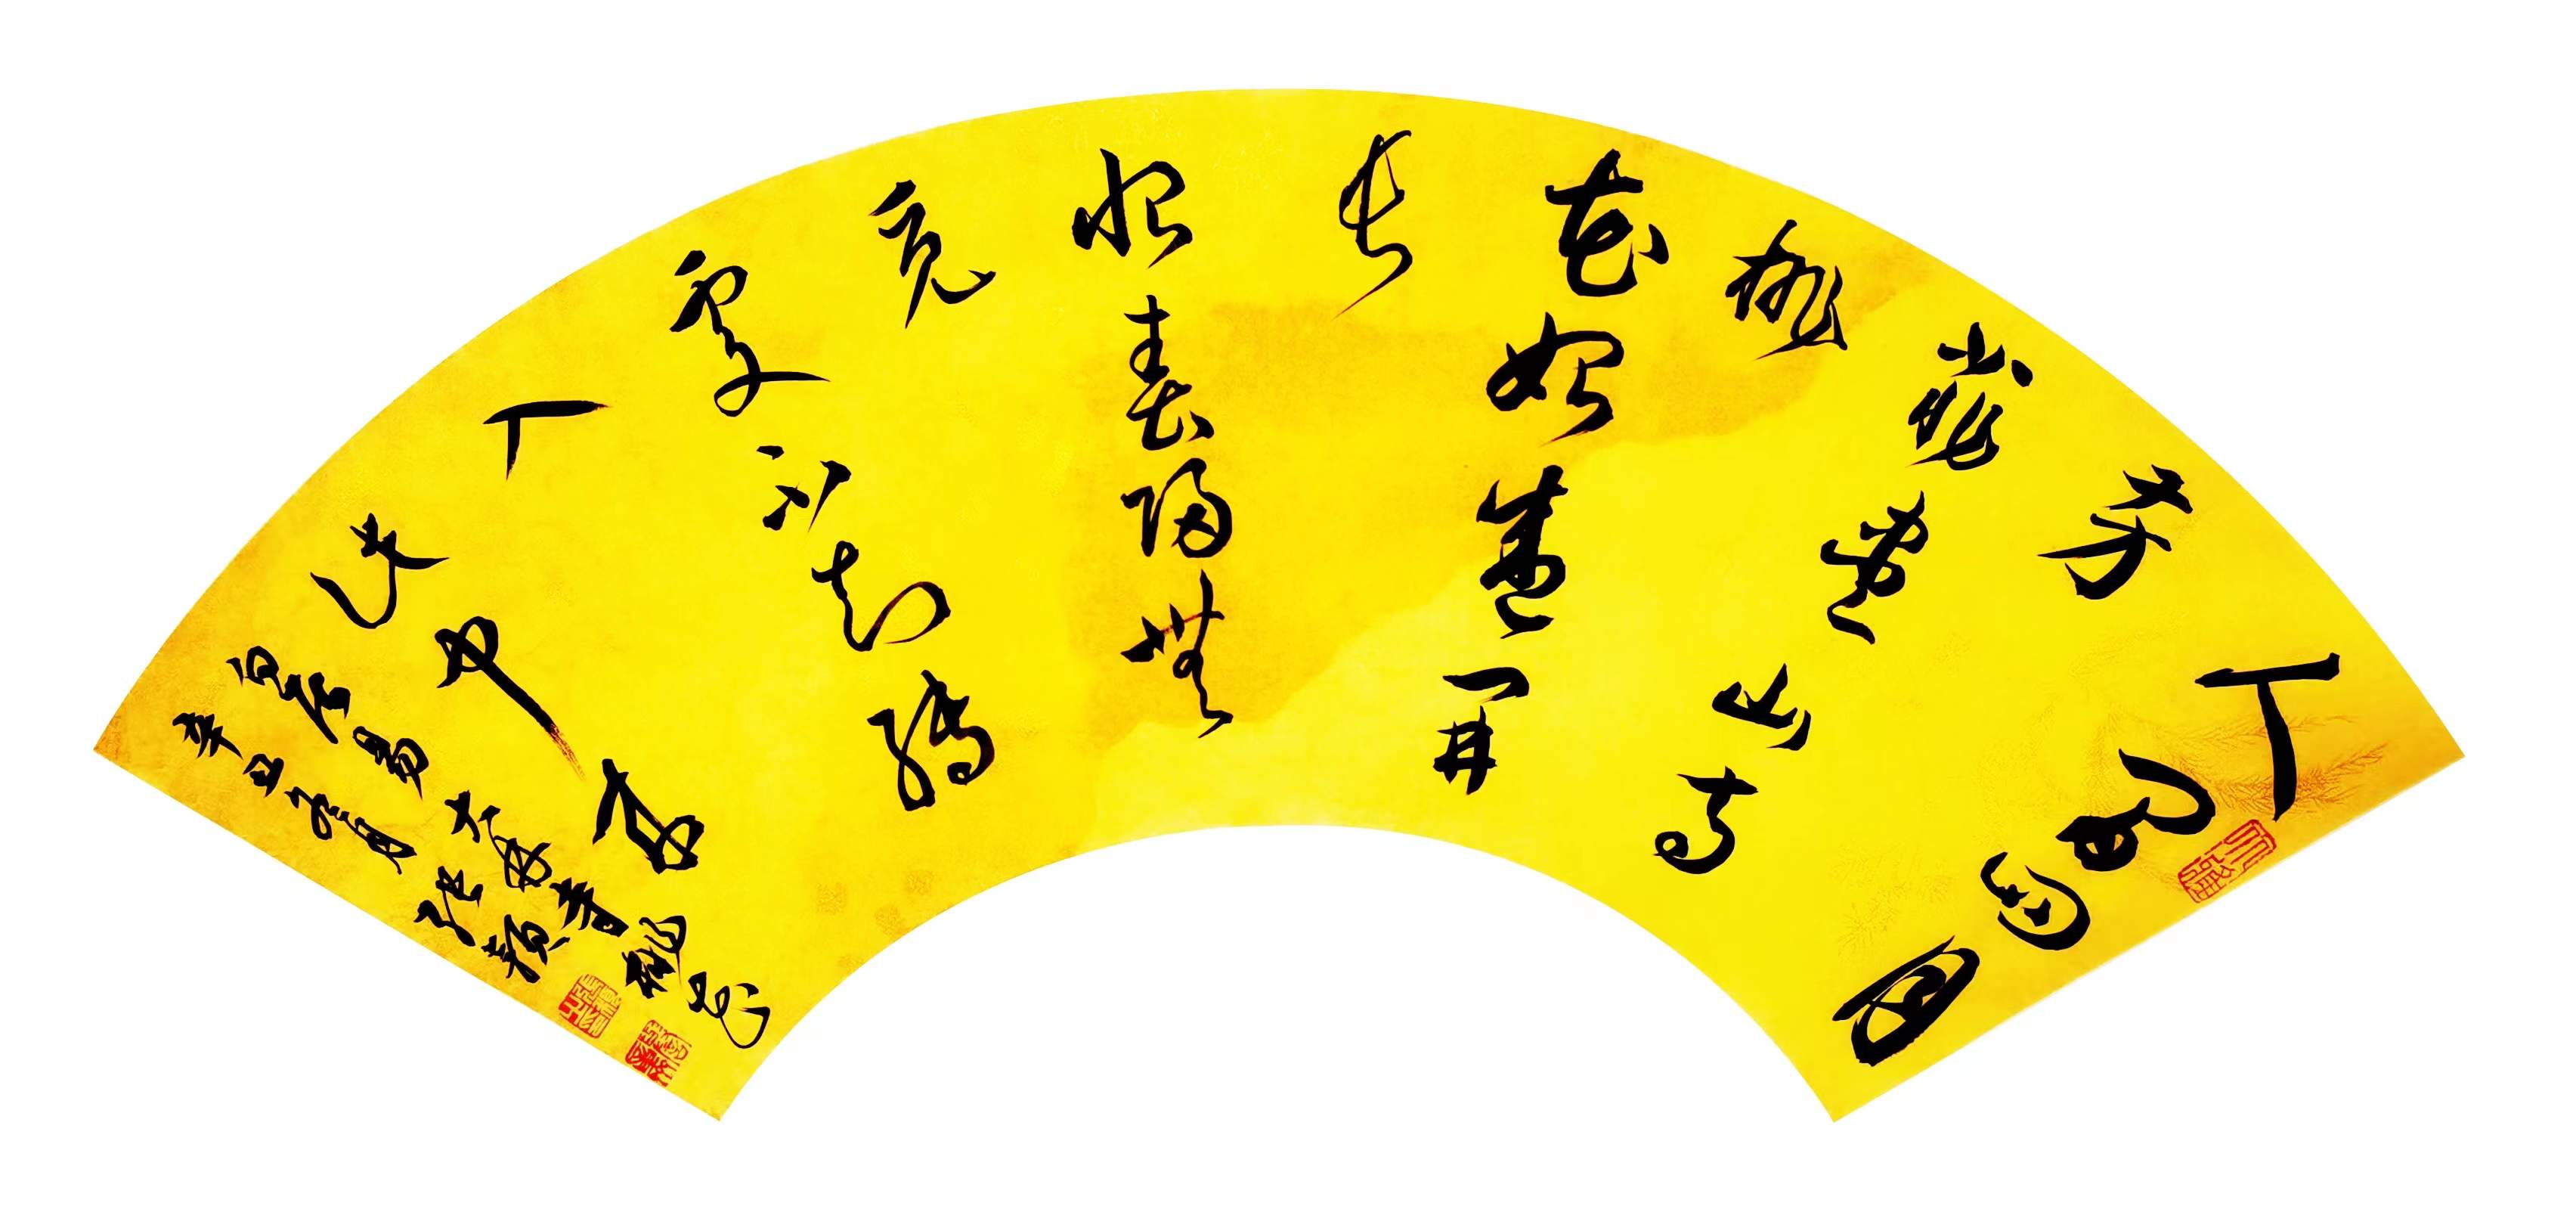 人間四月
芳
菲盡山寺
桃
花始盛開
長
恨春歸無
覓
處不知轉
入
此中來
白居易大林寺桃花
辛丑 月張